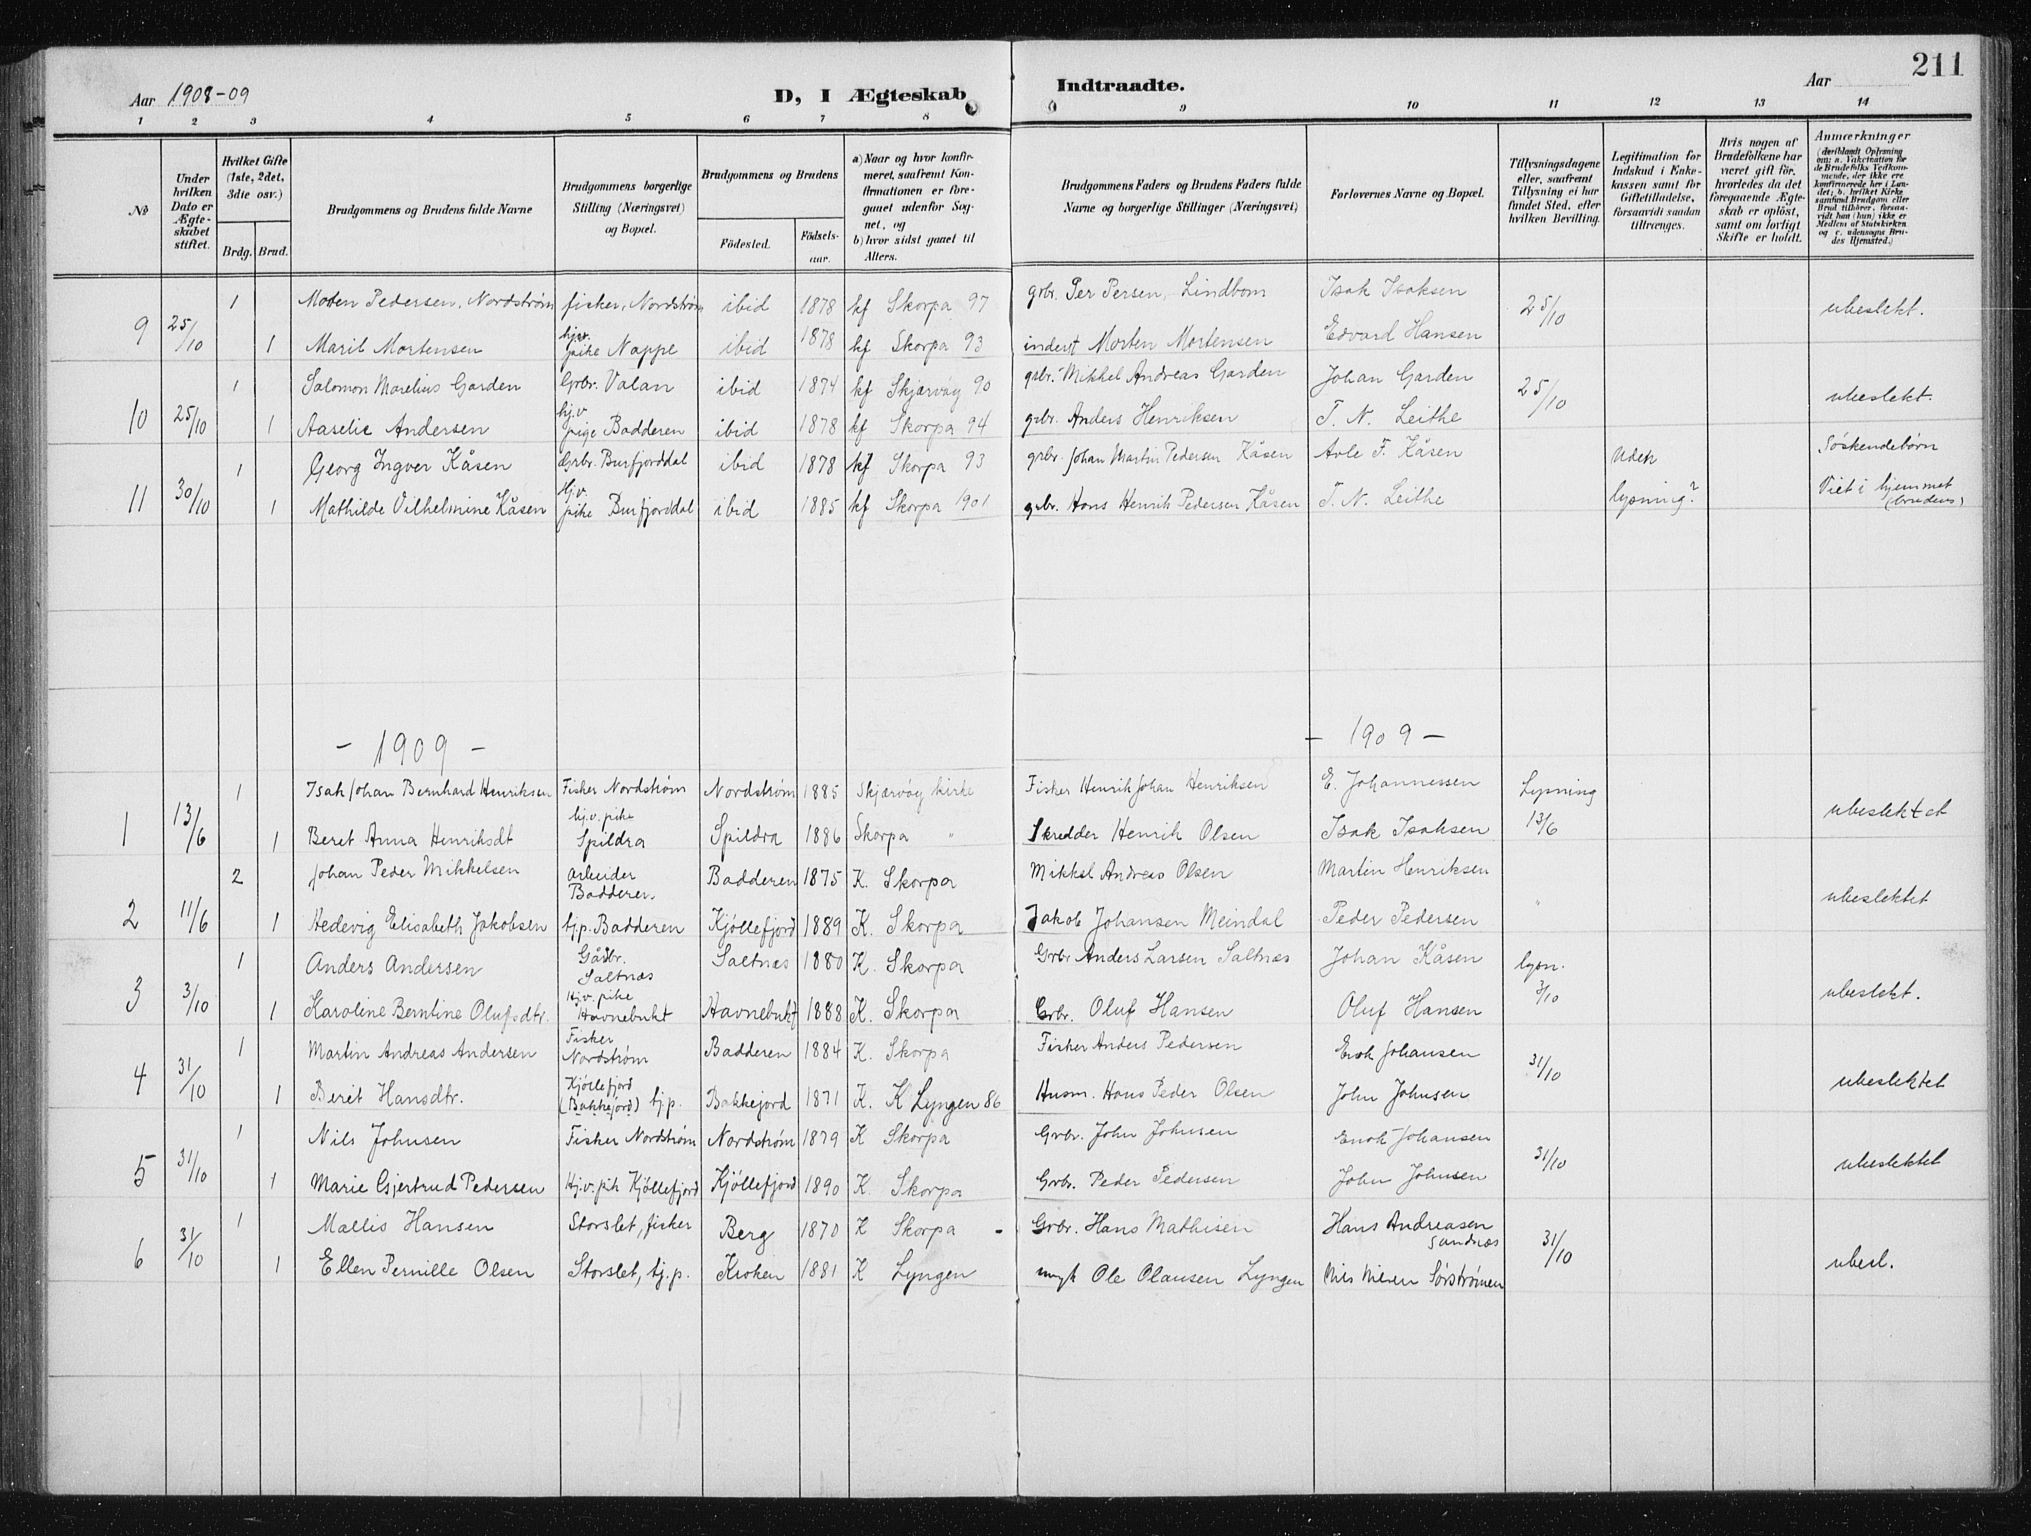 211
Aar 1908-09
D, I Ægteskab Indtraadte.
Aar
1 2 3 4 5 6 7 8 9 10 11 12 13 14
No
Under hvilken Dato er Ægteskabet stiftet.
Hvilket Gifte (1ste, 2det, 3die osv.)
Brdg. Brud.
Brudgommens og Brudens fulde Navne
Brudgommens borgerlige Stilling (Næringsvei) og Bopæl.
Brudgommens og Brudens
Fødested. Fødselsaar.
a) Naar og hvor konfirmeret, saafremt Konfirmationen er foregaaet udenfor Sognet, og
b) hvor sidst gaaet til Alters.
Brudgommens Faders og Brudens Faders fulde Navne og borgerlige Stillinger (Næringsvei)
Forlovernes Navne og Bopæl.
Tillysningsdagene eller, saafremt Tillysning ei har fundet Sted, efter hvilken Bevilling.
Legitimation for Indskud i Enkekassen samt for Giftetilladelse, forsaavidt saadan tiltrænges.
Hvis nogen af Brudefolkene har været gift før, hvorledes da det foregaaende Ægteskab er opløst, samt om lovligt Skifte er holdt.
Anmærkninger
(deriblandt Oplysning om: a. Vakcination for de Brudefolks Vedkommende, der ikke ere konfirmerede her i Landet; b. hvilket Kirkesamfund Brudgom eller Brud tilhører, forsaavidt han (hun) ikke er Medlem af Statskirken og c. udensogns Brudes Hjemsted.)
9 25/10 1 Moten Pedersen, Nordstrøm fisker, Nordstrøm ibid 1878 kf Skorpa 97 grbr. Per Persen, Lindbom Isak Isaksen 25/10 ubeslekt.
1 Maril Mortensen hjv. pike Nappe ibid 1878 kf Skorpa 93 inderst Morten Mortensen Edvard Hansen
10 25/10 1 Salomon Marelius Garden Grbr. Valan ibid 1874 kf Skjærvøy 90 grbr. Mikkel Andreas Garden Johan Garden 25/10 ubeslekt.
1 Aaselie Andersen hj.v pige Badderen ibid 1878 kf Skorpa 94 grbr. Anders Henriksen T. N. Leithe
11 30/10 1 Georg Ingver Kåsen Grbr. Burfjorddal ibid 1878 kf Skorpa 93 grbr. Johan Martin Pedersen Kåsen Arle F. Kåsen Uden Søskendebørn
1 Mathilde Vilhelmine Kåsen hj.v. pike Burfjorddal ibid 1885 kf Skorpa 1901 grbr. Hans Henrik Pedersen Kåsen T. N. Leithe lysning? Viet i hjemmet (brudens)
- 1909 - - 1909 -
1 13/6 1 Isak Johan Bernhard Henriksen Fisker Nordstrøm Nordstrøm 1885 Skjærvøy kirke Fisker Henrik Johan Henriksen E. Johannessen Lysning 13/6 ubeslektet
1 Beret Anna Henriksdt hj.v. pike Spildra Spildra 1886 Skorpa " Skredder Henrik Olsen Isak Isaksen
2 11/6 2 Johan Peder Mikkelsen arbeider Badderen Badderen 1875 K. Skorpa Mikkel Andreas Olsen Martin Henriksen " ubeslektet
1 Hedevig Elisabeth Jakobsen hj.p. Badderen Kjøllefjord 1889 K. Skorpa Jakob Johansen Meindal Peder Pedersen
3 3/10 1 Anders Andersen Gårbr. Saltnæs Saltnæs 1880 K. Skorpa Grbr Anders Larsen Saltnæs Johan Kåsen lysn. 3/10 ubeslekt.
1 Karoline Berntine Olufsdtr. Hj.v. pike Havnebukt Havnebukt 1888 K. Skorpa Grbr. Oluf Hansen Oluf Hansen
4 31/10 1 Martin Andreas Andersen Fisker Nordstrøm Badderen 1884 K. Skorpa Fisker Anders Pedersen Enok Johansen 31/10 ubeslektet
1 Beret Hansdtr. Kjøllefjord (Bakkejord) hj.p. Bakkejord 1871 K. K Lyngen 86 Husm. Hans Peder Olsen John Johnsen
5 31/10 1 Nils Johnsen Fisker Nordstrøm Nordstrøm 1879 K Skorpa Grbr. John Johnsen Enok Johansen 31/10 ubeslektet
1 Marie Gjertrud Pedersen Hj.v. pik Kjøllefjord Kjøllefjord 1890 K. Skorpa Grbr. Peder Pedersen John Johnsen
6 31/10 1 Mallis Hansen Storslet, fisker Berg 1870 K Skorpa - Grbr. Hans Mathisen Hans Andreasen Sandnæs 31/10 ubesl.
1 Ellen Pernille Olsen Storslet, hj.p. Kroken 1881 K Lyngen Ole Olausen Lyngen Nils Nilsen Sørstrømen